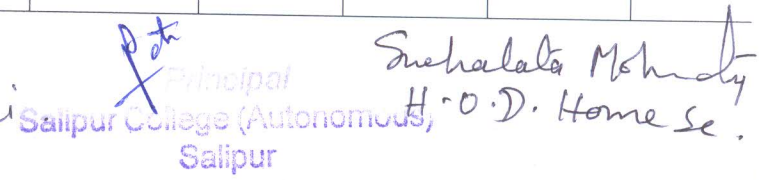 Principal
Salipur College (Autonomous)
Salipur
Snehalata Mohanty
H.O.D. Home Sc.